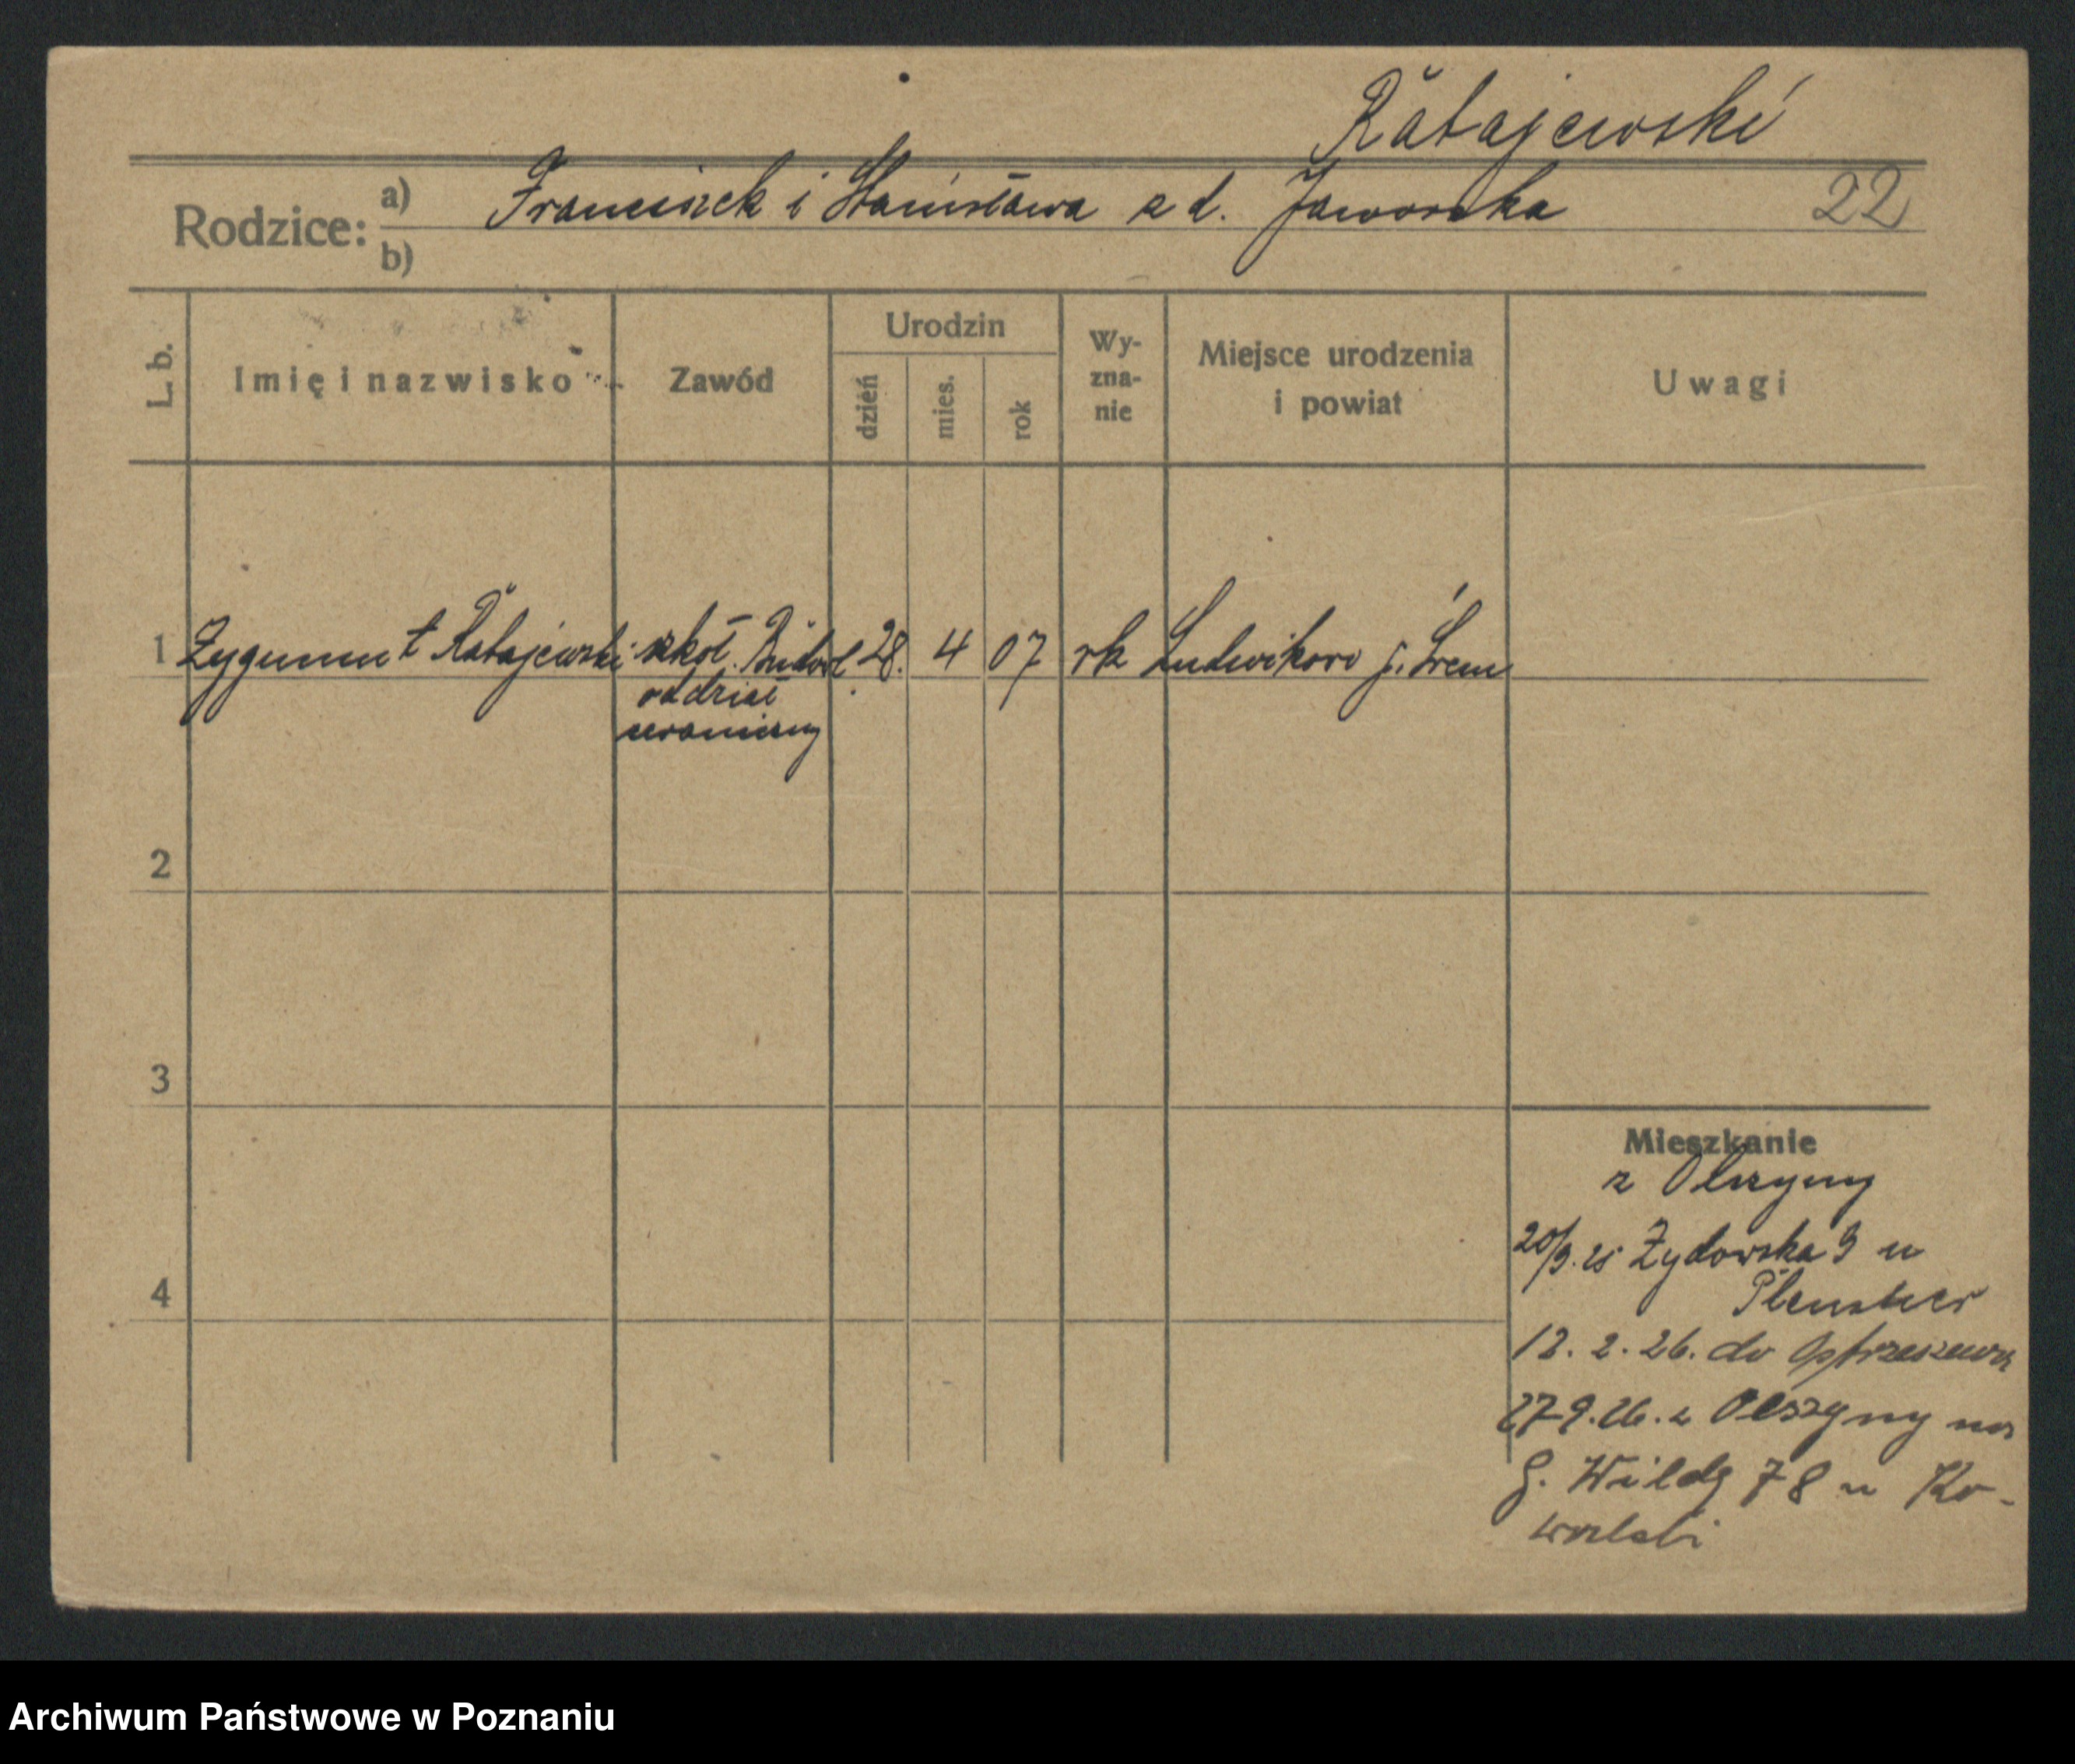 Ratajewski
Rodzice: a) Franciszek i Stanisława z d. Jaworska 22
b)
L. b. Imię i nazwisko Zawód Urodzin dzień mies. rok Wy-zna-nie Miejsce urodzenia i powiat Uwagi
1 Zygmunt Ratajewski szkoł. Budowl. 28. 4 07 rk Ludwikowo p. Śrem
oddział
ceramiczny
2
3
4
Mieszkanie
z Olszyny
20/9.25 Żydowska 9 u
12. 2. 26. do Ostrzeszowa
27 9. 26. z Olszyny na
G. Wildę 78 u Ko-
walski
Archiwum Państwowe w Poznaniu